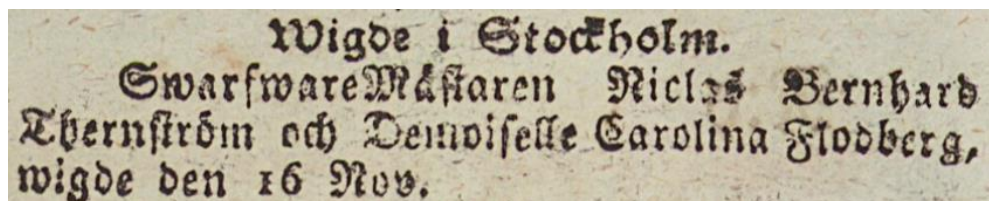 Wigde i Stockholm.
SwarfwareMästaren Niclas Bernhard
Thernström och Demoiselle Carolina Flodberg,
wigde den 16 Nov.